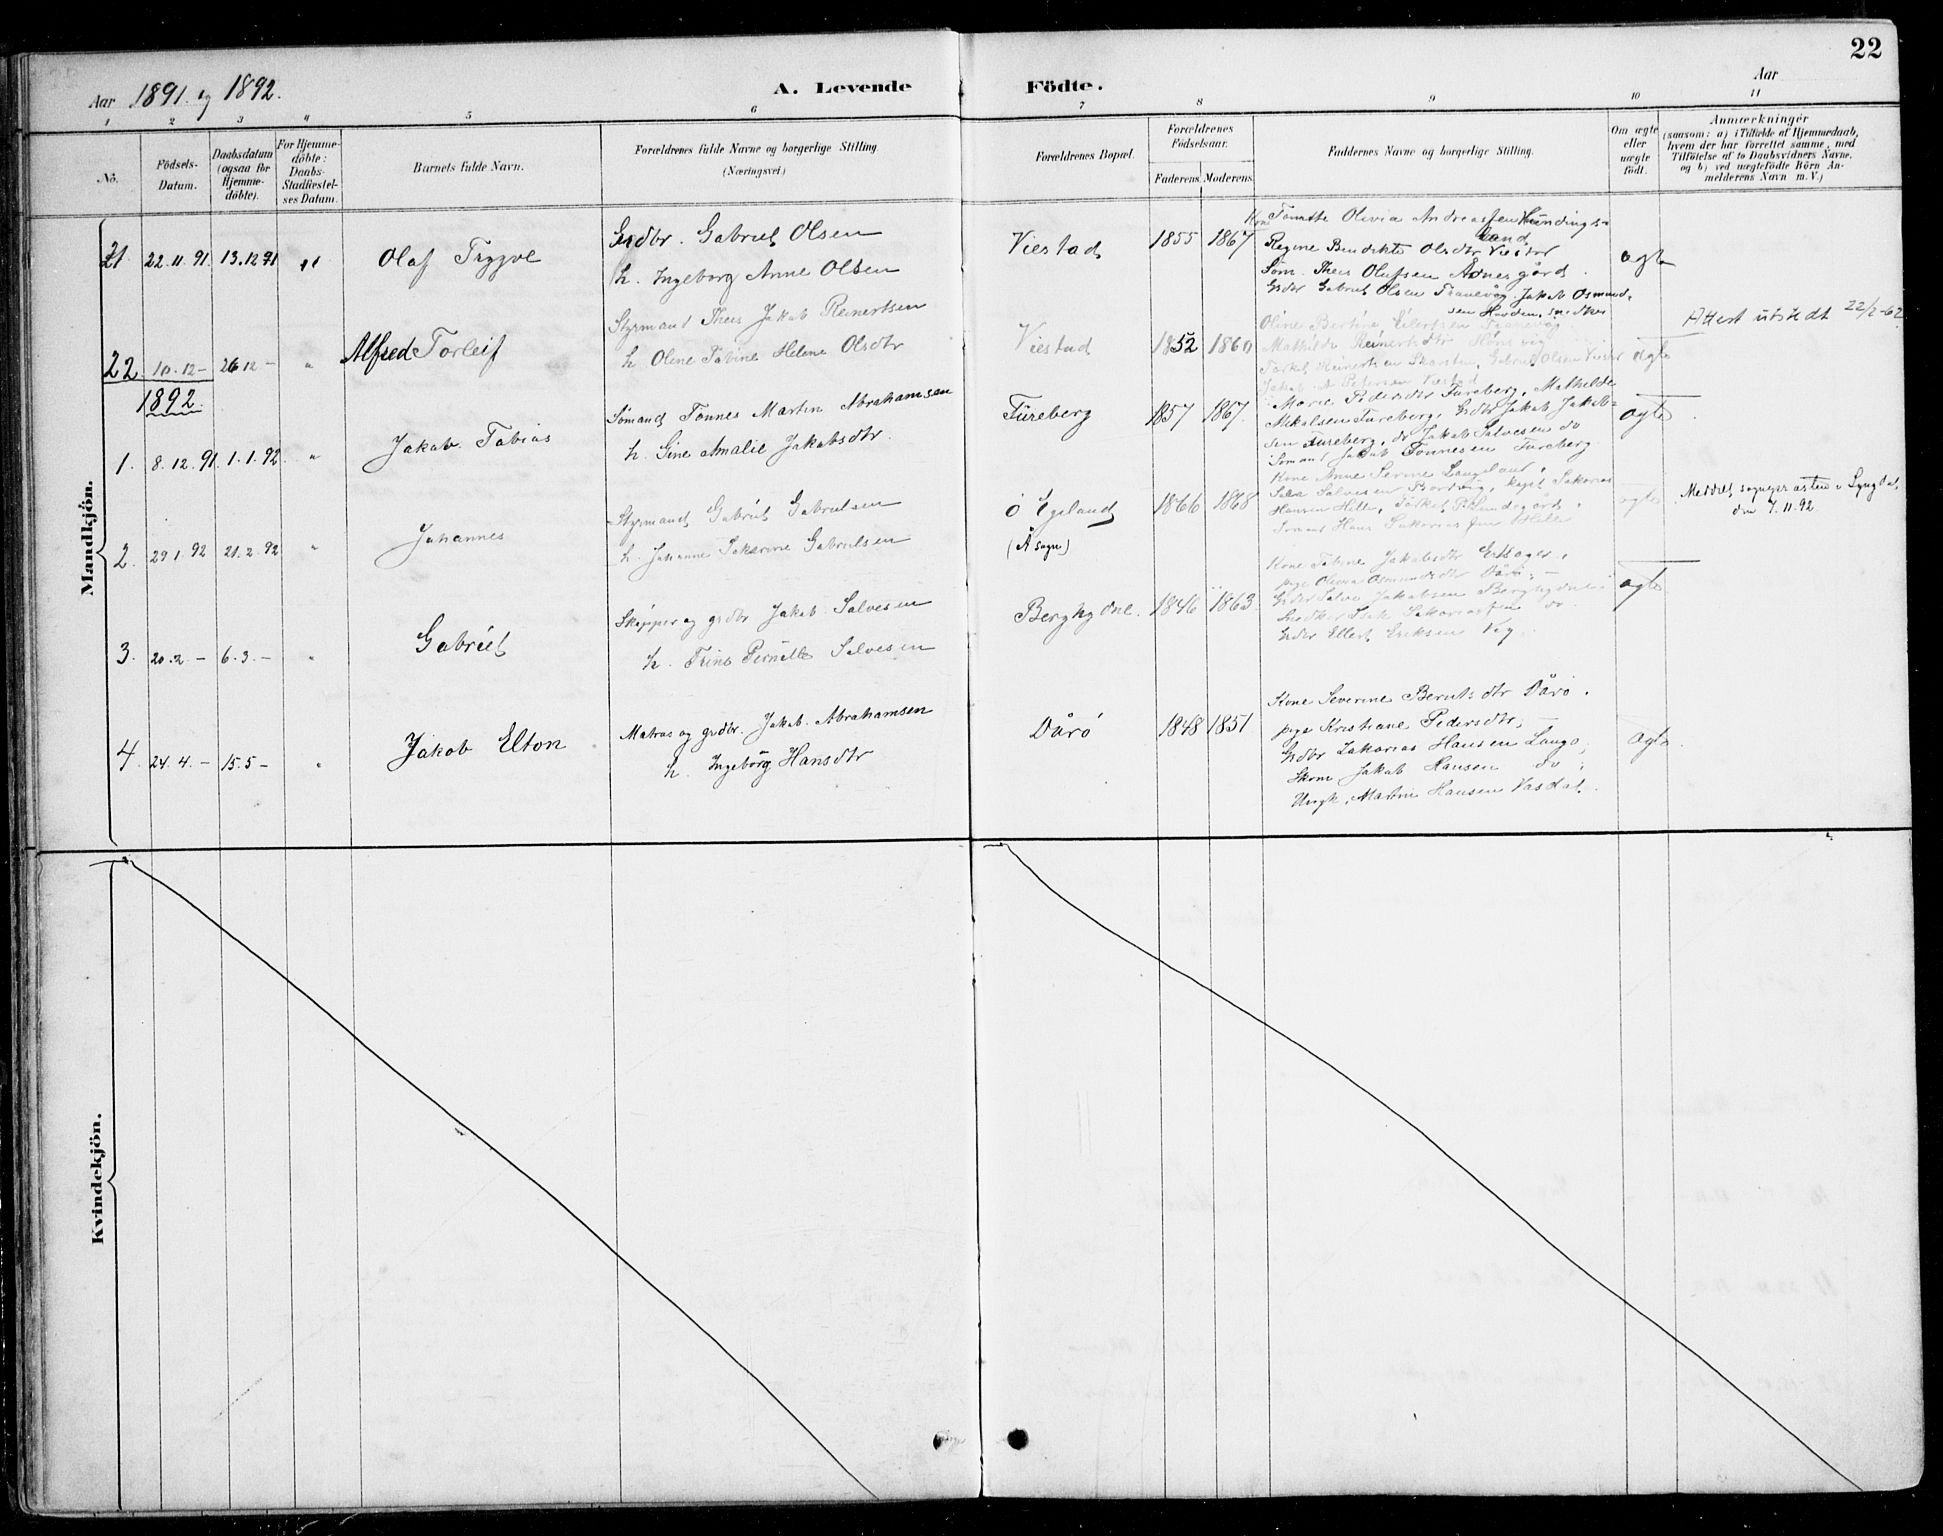 22
Aar 1891 og 1892.
A. Levende Födte.
Aar
1 2 3 4 5 6 7 8 9 10 11
No.
Födsels-Datum.
Daabsdatum (ogsaa for Hjemme-döbte).
For Hjemme-döbte: Daabs-Stadfæstel-ses Datum.
Barnets fulde Navn.
Forældrenes fulde Navne og borgerlige Stilling
(Næringsvei)
Forældrenes Bopæl.
Forældrenes Födselsaar.
Faderens Moderens
Faddernes Navne og borgerlige Stilling.
Om ægte eller uægte födt.
Anmærkninger
(saasom: a) i Tilfælde af Hjemmedaab,
hvem der har forrettet samme, med
Tilföielse af to Daabsvidners Navne,
og b) ved uægtefödte Börn An-
melderens Navn m. V.)
Mandkjön.
21 22.11.91 13.12 91 " Olaf Trygve
Grdbr. Gabriel Olsen
h. Ingeborg Anne Olsen
Viestad 1855 1867
Kone Tomette Olivia Andreassen Hundings-
land
Regine Bendikte Olsdtr Viestad
Søm. Theis Olufsen Ådnesgård.
Grdbr Gabriel Olsen Tranevåg. Jakob Osmund-
sen Havden, snedker
ægte
22. 10.12 - 26 12 - " Alfred Torleif
Styrmand Theis Jakob Reinertsen
h. Oline Tobine Helene Olsdtr
Viestad 1852 1860
Oline Bertine Eilertsen Tranevåg
Mathilde Reinertsdtr
Torkel Reinertsen Skarstein, Gabriel Olsen Viestad
Jakob A Petersen Viestad
ægte
Attest utstedt 22/2-62
1892.
1. 8.12.91 1.1.92 " Jakob Tobias
Sømand Tønnes Martin Abrahamsen
h. Sine Amalie Jakobsdtr.
Fureberg 1857 1867.
Marie Pedersdtr Fureberg, Mathilde
Mikalsen Fureberg, Grdbr Jakob Jakob-
sen Fureberg, do Jakob Salvesen do
Sømand Jakob Tønnesen Fureberg.
ægte
2. 29 1. 92 21.2.92 " Johannes
Styrmand Gabriel Gabrielsen
h. Johanne Sakarine Gabrielsen
ø Egeland
(Å sogn)
1866 1868
Kone Anne Serine Langeland,
Salve Salvesen kapt. Sakarias
Hansen Hille, Torkel Lundegård,
Sømand Hans Sakariassen Hille
ægte
Meddelt sognepresten i Lyngdal
den 7.11.92
3. 20.2 - 6.3. - " Gabriel
Skipper og grdbr Jakob Salvesen
h. Trine Pernille Salvesen
Berghydne. 1846 1863
Kone Tobine Jakobsdtr
pige Olivia Osmundsdtr Dårø, -
Grdbr Salve Jakobsen Berghydne
Snedker Isak Sakariassen do
Grdbr Ellert Eriksen Vig.
ægte
4. 24.4. - 15.5 - " Jakob Elton
Matros og grdbr. Jakob Abrahamsen
h. Ingeborg Hansdtr
Dårø 1848 1851
Kone Severine Berntsdtr Dårø.
pige Kristiane Pedersdtr, -
Grdbr Zakarias Hansen Langø,
Skom Jakob Hansen do;
Ungk. Martin Hansen Vasdal.
ægte.
Kvindekjön.